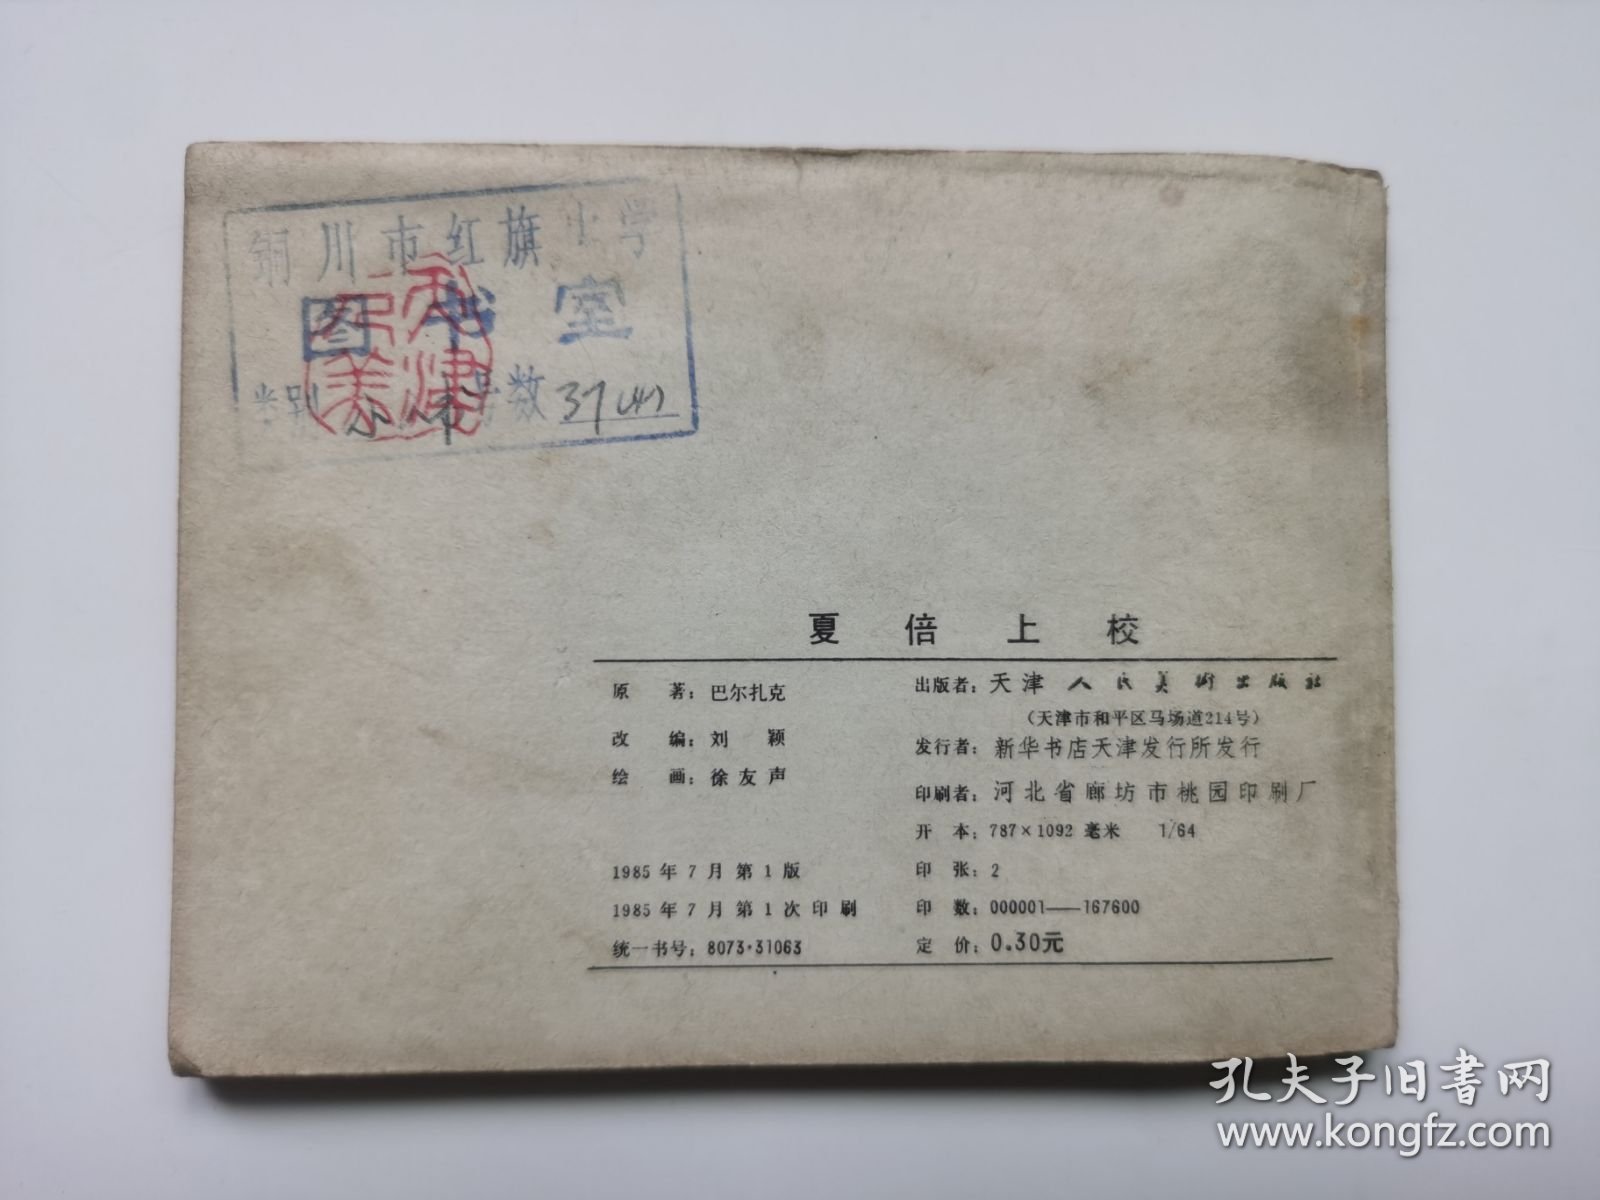 铜川市红旗小学
图书室
类别 号数 37
天津
人美
夏倍上校
原 著：巴尔扎克
改 编：刘 颖
绘 画：徐友声
1985年7月第1版
1985年7月第1次印刷
统一书号：8073·31063
出版者：天津人民美術出版社
（天津市和平区马场道214号）
发行者：新华书店天津发行所发行
印刷者：河北省廊坊市桃园印刷厂
开 本：787×1092 毫米 1/64
印 张：2
印 数：000001——167600
定 价：0.30元
孔夫子旧書网
www.kongfz.com